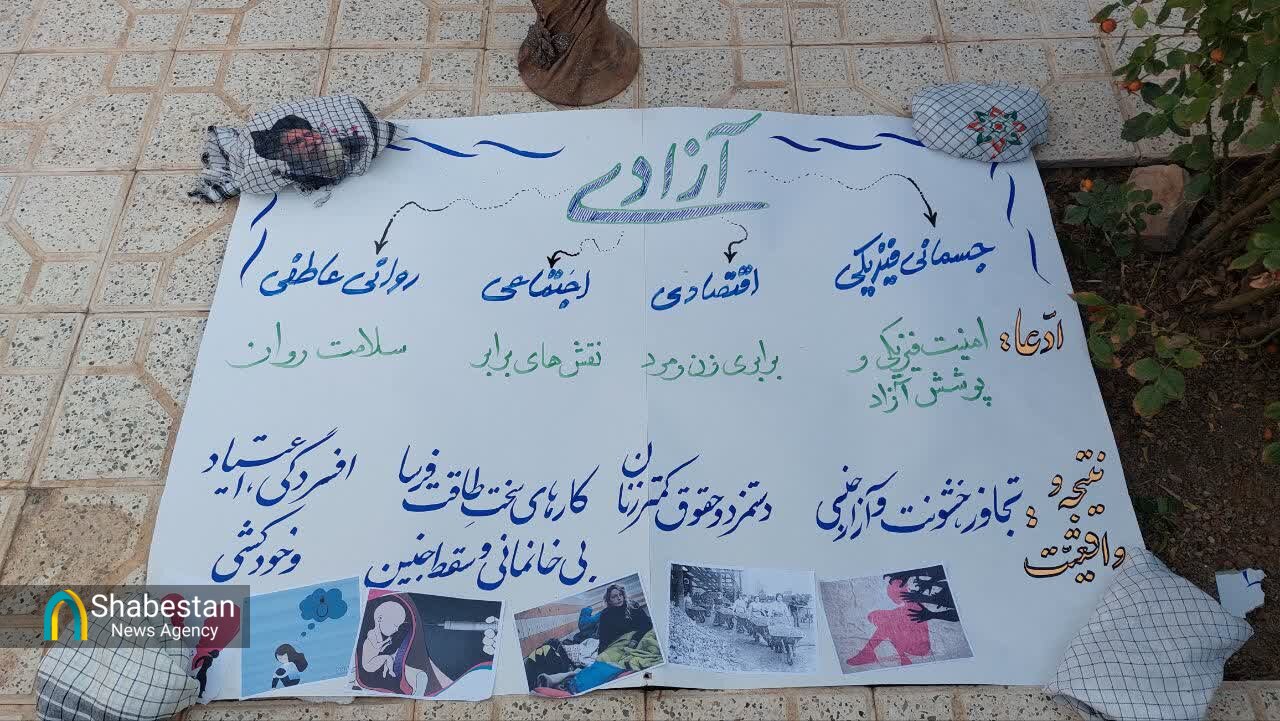 آزادی
جسمانی فیزیکی
اقتصادی
اجتماعی
روانی عاطفی
ادّعا:
امنیت فیزیکی و
پوشش آزاد
برابری زن و مرد
نقش های برابر
سلامت روان
نتیجه و
واقعیت:
تجاوز، خشونت و آزار جنسی
دستمزد و حقوق کمتر زنان
کارهای سخت طاقت فرسا
بی خانمانی و سقط جنین
افسردگی، اعتیاد
و خودکشی
Shabestan
News Agency